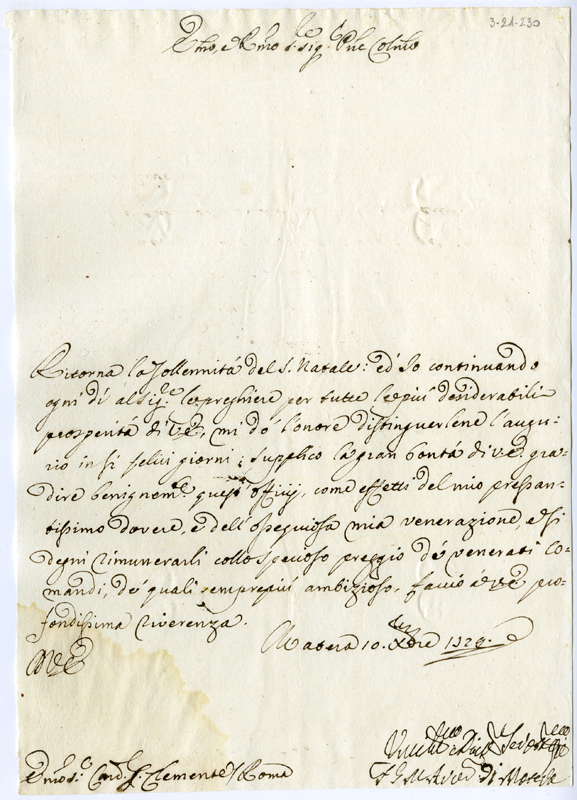 3-21-230
Emo, e Rmo S.r Sig.r Pne Colmo
Ritorna la Sollennitá del S. Natale: ed Io continuando
ogni dí al Sig.re le preghiere per tutte le piú desiderabili
prosperitá di VE, mi dó l'onore distinguerlene l'augu-
rio in sí felici giorni; supplico la gran bontá di VE gra-
dire benignom.te questi offizij, come effetti del mio pressan-
tissimo dovere, e dell'ossequiosa mia venerazione, e si
degni rimunerarli collo specioso preggio de' venerati co-
mandi, de' quali semprepiú ambizioso, faccio á VE pro-
fondissima riverenza.
Matera 10. Xbre 1729.
DVE
Emo S.r Card. S. Clemente / Roma
di Matera